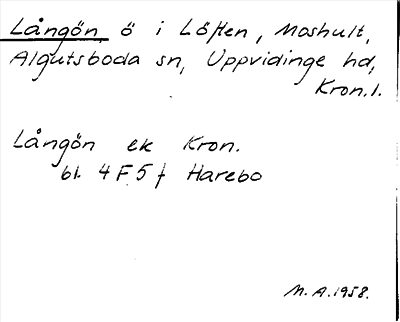 Långön, ö i Löften, Moshult,
Algutsboda sn, Uppvidinge hd,
Kron. l.
Långön ek Kron.
bl. 4F5f Harebo
M.A. 1958.